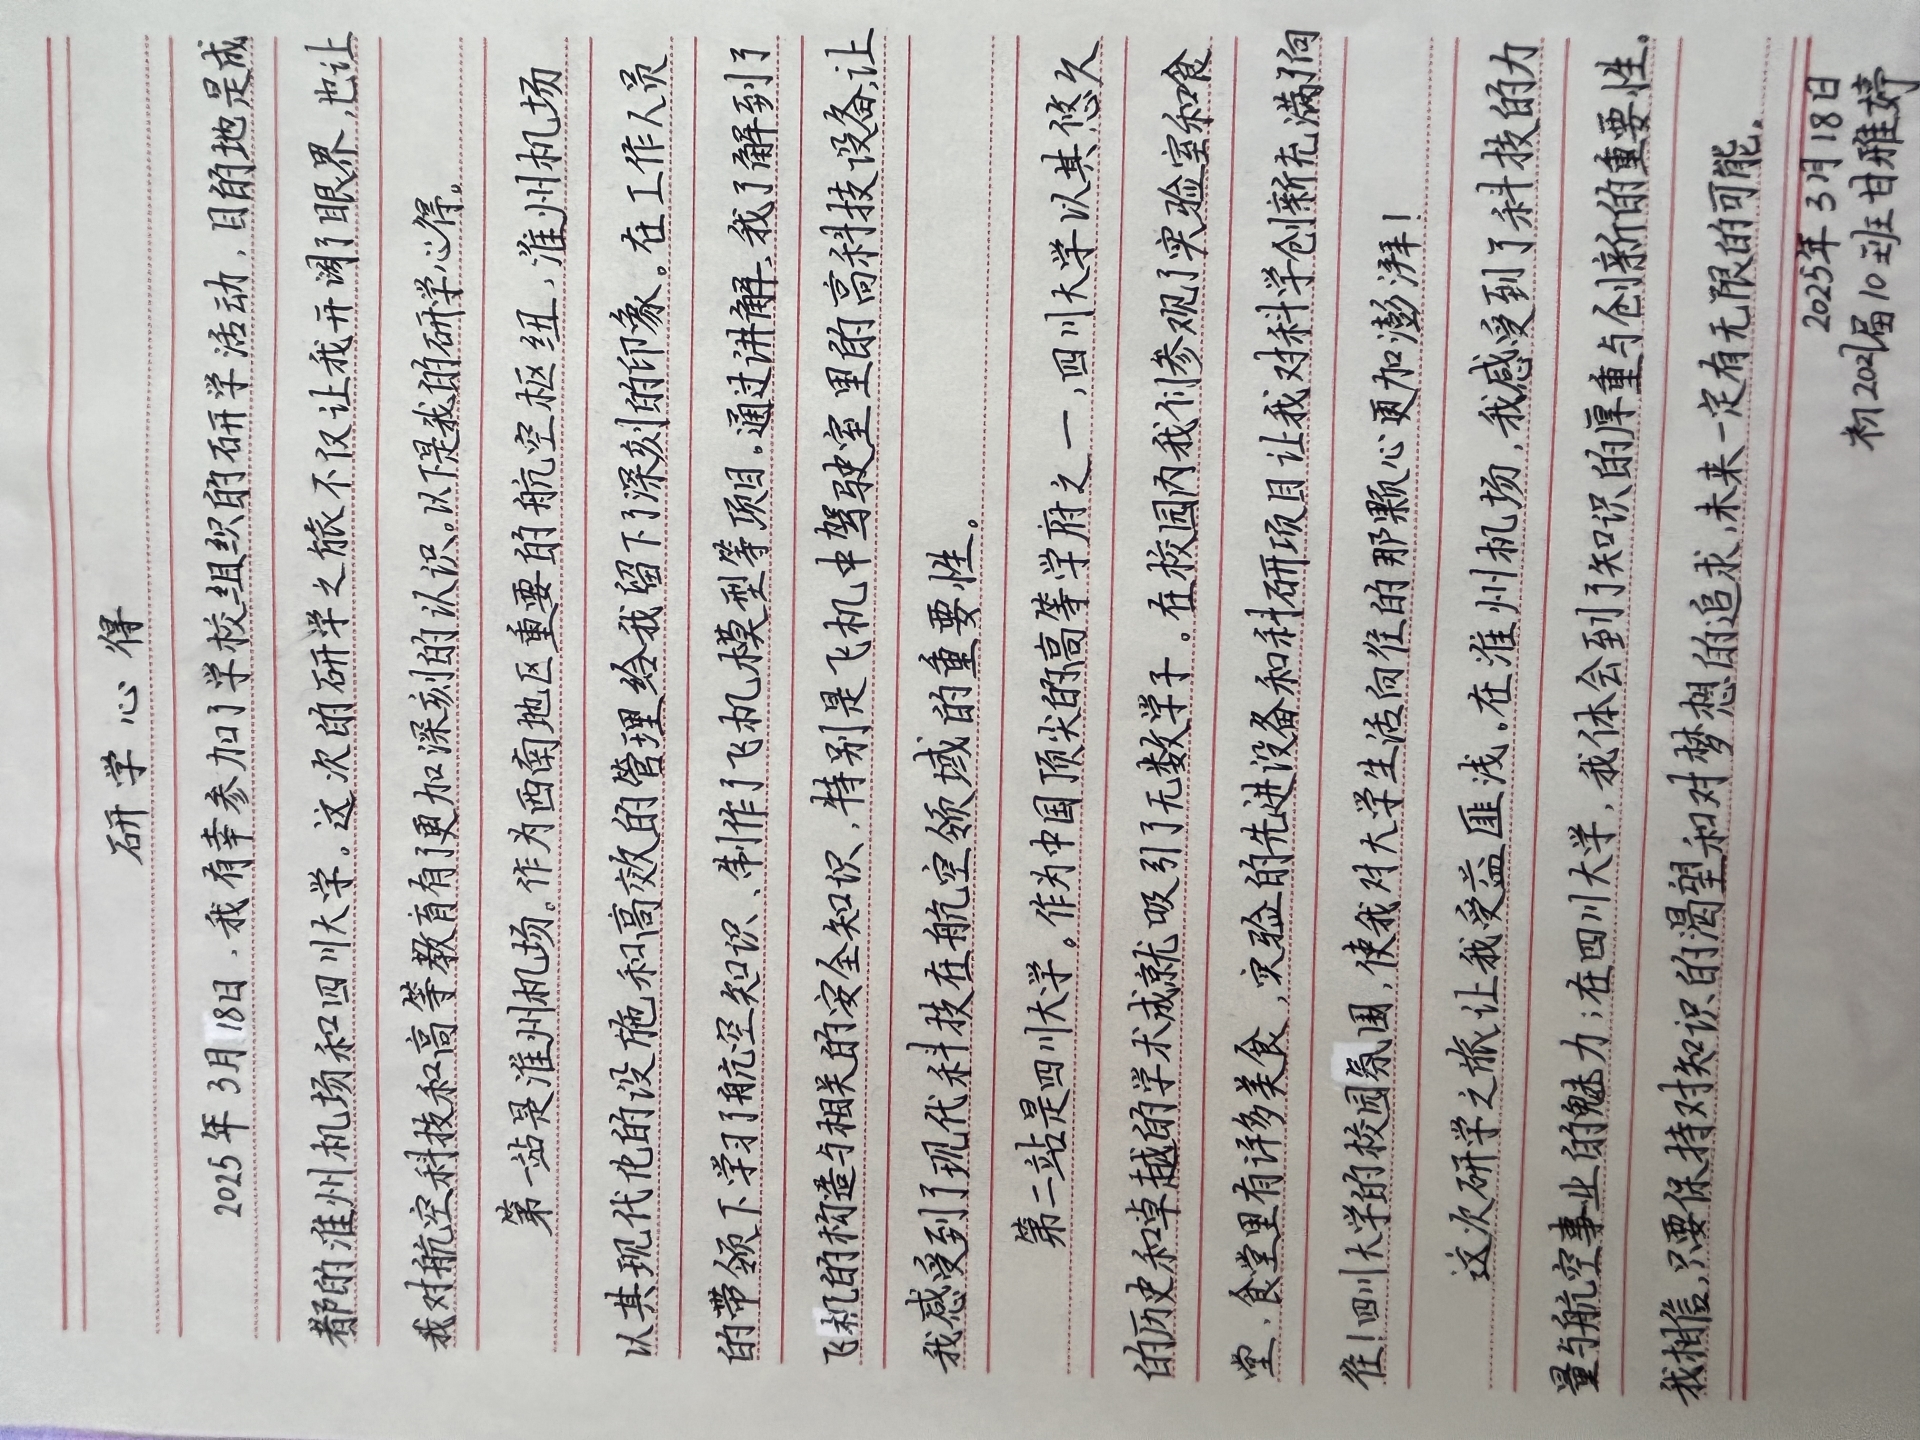 研学心得
2025年3月18日，我有幸参加了学校组织的研学活动，目的地是成
都的淮州机场和四川大学。这次的研学之旅不仅让我开阔了眼界，也让
我对航空科技和高等教育有了更加深刻的认识。以下是我的研学心得。
第一站是淮州机场。作为西南地区重要的航空枢纽，淮州机场
以其现代化的设施和高效的管理给我留下了深刻的印象。在工作人员
的带领下学习了航空知识、制作了飞机模型等项目。通过讲解，我了解到了
飞机的构造与相关的安全知识，特别是飞机中驾驶室里的高科技设备，让
我感受到了现代科技在航空领域的重要性。
第二站是四川大学。作为中国顶尖的高等学府之一，四川大学以其悠久
的历史和卓越的学术成就吸引了无数学子。在校园内我们参观了实验室和食
堂，食堂里有许多美食，实验的先进设备和科研项目让我对科学创新充满了向
往！四川大学的校园氛围，使我对大学生活向往的那颗心更加澎湃！
这次研学之旅让我受益匪浅。在淮州机场，我感受到了科技的力
量与航空事业的魅力；在四川大学，我体会到了知识的厚重与创新的重要性。
我相信，只要保持对知识的渴望和对梦想的追求，未来一定有无限的可能。
2025年3月18日
初2027届10班甘雅婷